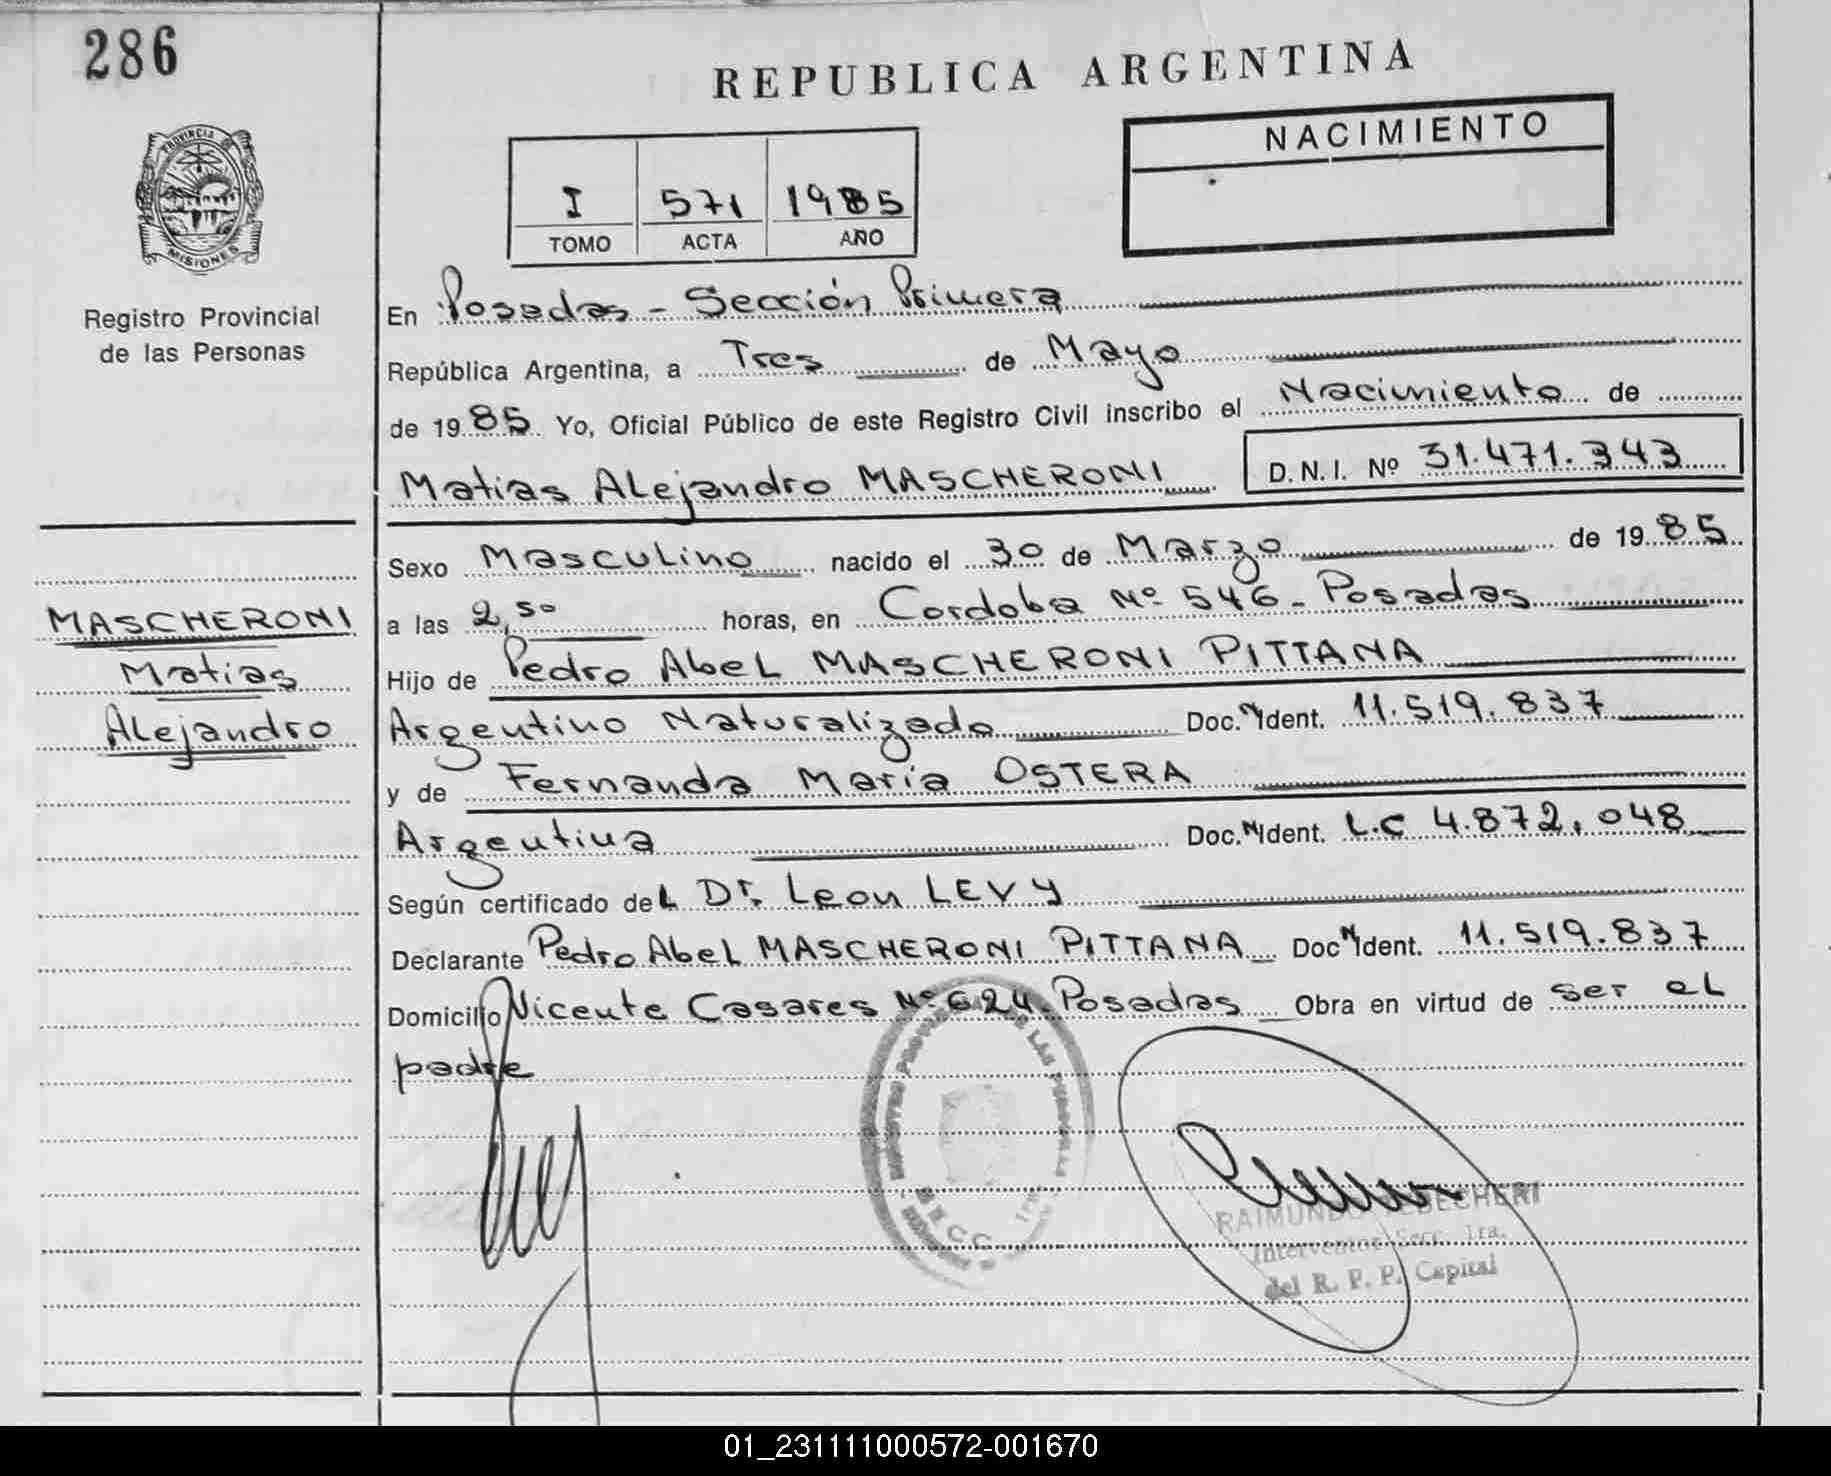 286
REPUBLICA ARGENTINA
PROVINCIA
MISIONES
Registro Provincial
de las Personas
NACIMIENTO
I 571 1985
TOMO ACTA AÑO
En Posadas - Sección Primera
República Argentina, a Tres de Mayo
de 1985 Yo, Oficial Público de este Registro Civil inscribo el Nacimiento de
Matias Alejandro MASCHERONI D.N.I. Nº 31.471.343
Sexo Masculino nacido el 30 de Marzo de 1985
MASCHERONI
Matias
Alejandro
a las 2,50 horas, en Cordoba Nº 546 - Posadas
Hijo de Pedro Abel MASCHERONI PITTANA
Argentino Naturalizado Doc. N Ident. 11.519.837
y de Fernanda Maria OSTERA
Argentina Doc. N Ident. L.C 4.872.048
Según certificado del Dr. Leon LEVY
Declarante Pedro Abel MASCHERONI PITTANA Doc N Ident. 11.519.837
Domicilio Vicente Casares Nº 624 Posadas Obra en virtud de ser el
padre
LAS
SECC.
RAIMUNDO
Interventor Secc. 1ra.
del R. P. P. Capital
01_231111000572-001670